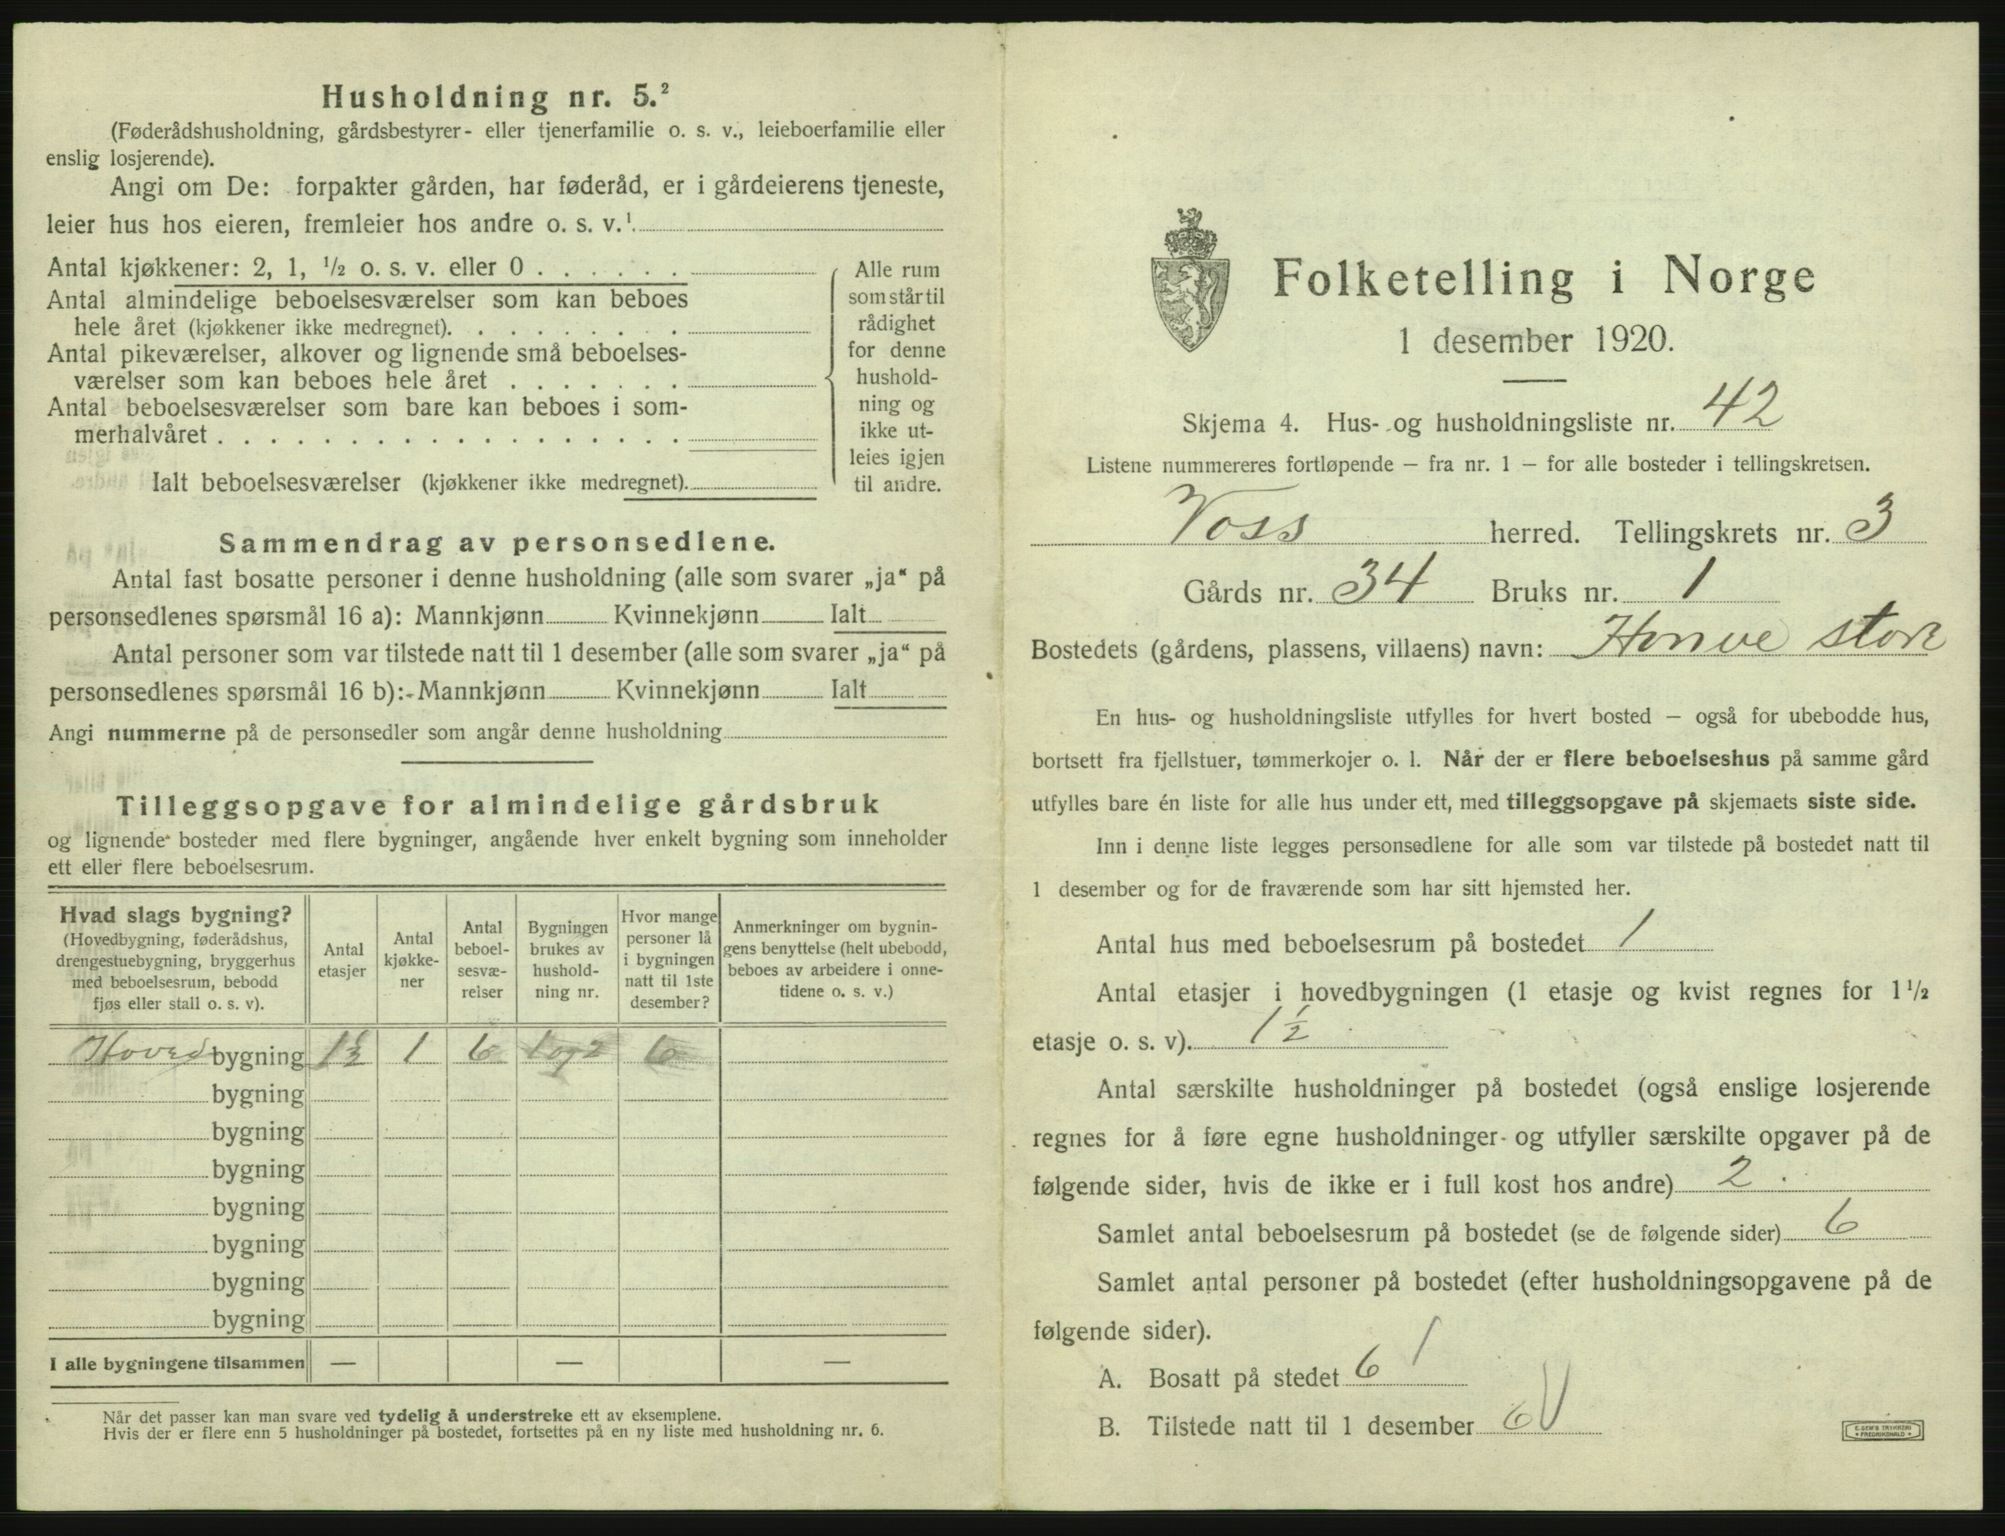 Husholdning nr. 5.²
(Føderådshusholdning, gårdsbestyrer- eller tjenerfamilie o. s. v., leieboerfamilie eller
enslig losjerende).
Angi om De: forpakter gården, har føderåd, er i gårdeierens tjeneste,
leier hus hos eieren, fremleier hos andre o. s. v.¹
Antal kjøkkener: 2, 1, ½ o. s. v. eller 0 . . . . . .
Antal almindelige beboelsesværelser som kan beboes
hele året (kjøkkener ikke medregnet). . . . . . . . .
Antal pikeværelser, alkover og lignende små beboelses-
værelser som kan beboes hele året . . . . . . .
Antal beboelsesværelser som bare kan beboes i som-
merhalvåret . . . . . . . . . . . . . . . . . .
Ialt beboelsesværelser (kjøkkener ikke medregnet).
Alle rum
som står til
rådighet
for denne
hushold-
ning og
ikke ut-
leies igjen
til andre.
Sammendrag av personsedlene.
Antal fast bosatte personer i denne husholdning (alle som svarer „ja“ på
personsedlenes spørsmål 16 a): Mannkjønn Kvinnekjønn Ialt
Antal personer som var tilstede natt til 1 desember (alle som svarer „ja“ på
personsedlenes spørsmål 16 b): Mannkjønn Kvinnekjønn Ialt
Angi nummerne på de personsedler som angår denne husholdning
Tilleggsopgave for almindelige gårdsbruk
og lignende bosteder med flere bygninger, angående hver enkelt bygning som inneholder
ett eller flere beboelsesrum.
Hvad slags bygning?
(Hovedbygning, føderådshus,
drengestuebygning, bryggerhus
med beboelsesrum, bebodd
fjøs eller stall o. s. v).
Antal
etasjer
Antal
kjøkke-
ner
Antal
beboel-
sesvæ-
relser
Bygningen
brukes av
hushold-
ning nr.
Hvor mange
personer lå
i bygningen
natt til 1ste
desember?
Anmerkninger om bygnin-
gens benyttelse (helt ubebodd,
beboes av arbeidere i onne-
tidene o. s. v.)
Hovedbygning 1½ 1 6 1 og 2 6
bygning
bygning
bygning
bygning
bygning
bygning
bygning
I alle bygningene tilsammen — — —
Når det passer kan man svare ved tydelig å understreke ett av eksemplene.
Hvis der er flere enn 5 husholdninger på bostedet, fortsettes på en ny liste med husholdning nr. 6.
Folketelling i Norge
1 desember 1920.
Skjema 4. Hus- og husholdningsliste nr. 42
Listene nummereres fortløpende – fra nr. 1 – for alle bosteder i tellingskretsen.
Voss herred. Tellingskrets nr. 3
Gårds nr. 34 Bruks nr. 1
Bostedets (gårdens, plassens, villaens) navn: Honve store
En hus- og husholdningsliste utfylles for hvert bosted – også for ubebodde hus,
bortsett fra fjellstuer, tømmerkojer o. l. Når der er flere beboelseshus på samme gård
utfylles bare én liste for alle hus under ett, med tilleggsopgave på skjemaets siste side.
Inn i denne liste legges personsedlene for alle som var tilstede på bostedet natt til
1 desember og for de fraværende som har sitt hjemsted her.
Antal hus med beboelsesrum på bostedet 1
Antal etasjer i hovedbygningen (1 etasje og kvist regnes for 1½
etasje o. s. v). 1½
Antal særskilte husholdninger på bostedet (også enslige losjerende
regnes for å føre egne husholdninger og utfyller særskilte opgaver på de
følgende sider, hvis de ikke er i full kost hos andre) 2
Samlet antal beboelsesrum på bostedet (se de følgende sider) 6
Samlet antal personer på bostedet (efter husholdningsopgavene på de
følgende sider).
A. Bosatt på stedet 6
B. Tilstede natt til 1 desember 6